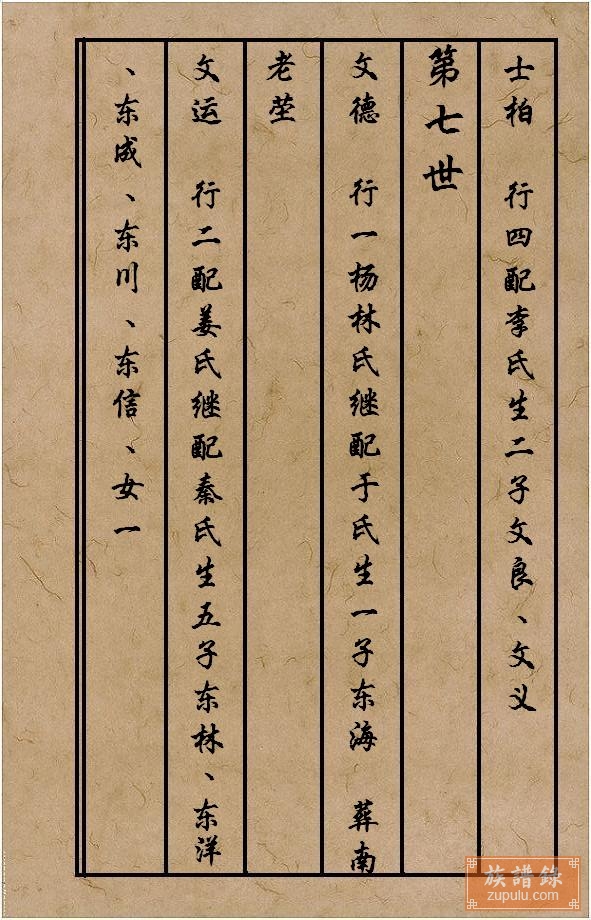 士柏 行四配李氏生二子文良、文义
第七世
文德 行一杨林氏继配于氏生一子东海 葬南
老茔
文运 行二配姜氏继配秦氏生五子东林、东洋
、东成、东川、东信、女一
族譜錄
zupulu.com